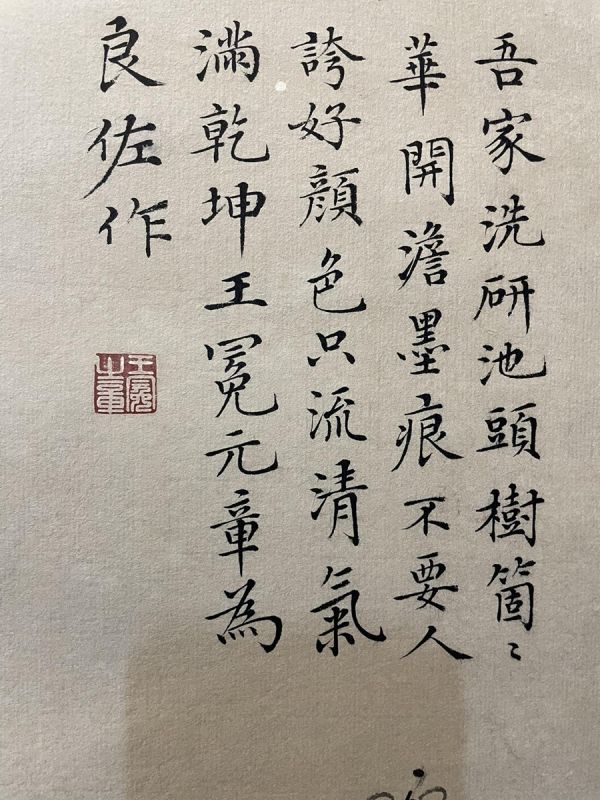 吾家洗研池頭樹箇〻
華開澹墨痕不要人
誇好顔色只流清氣
滿乾坤王冕元章為
良佐作
王冕之章